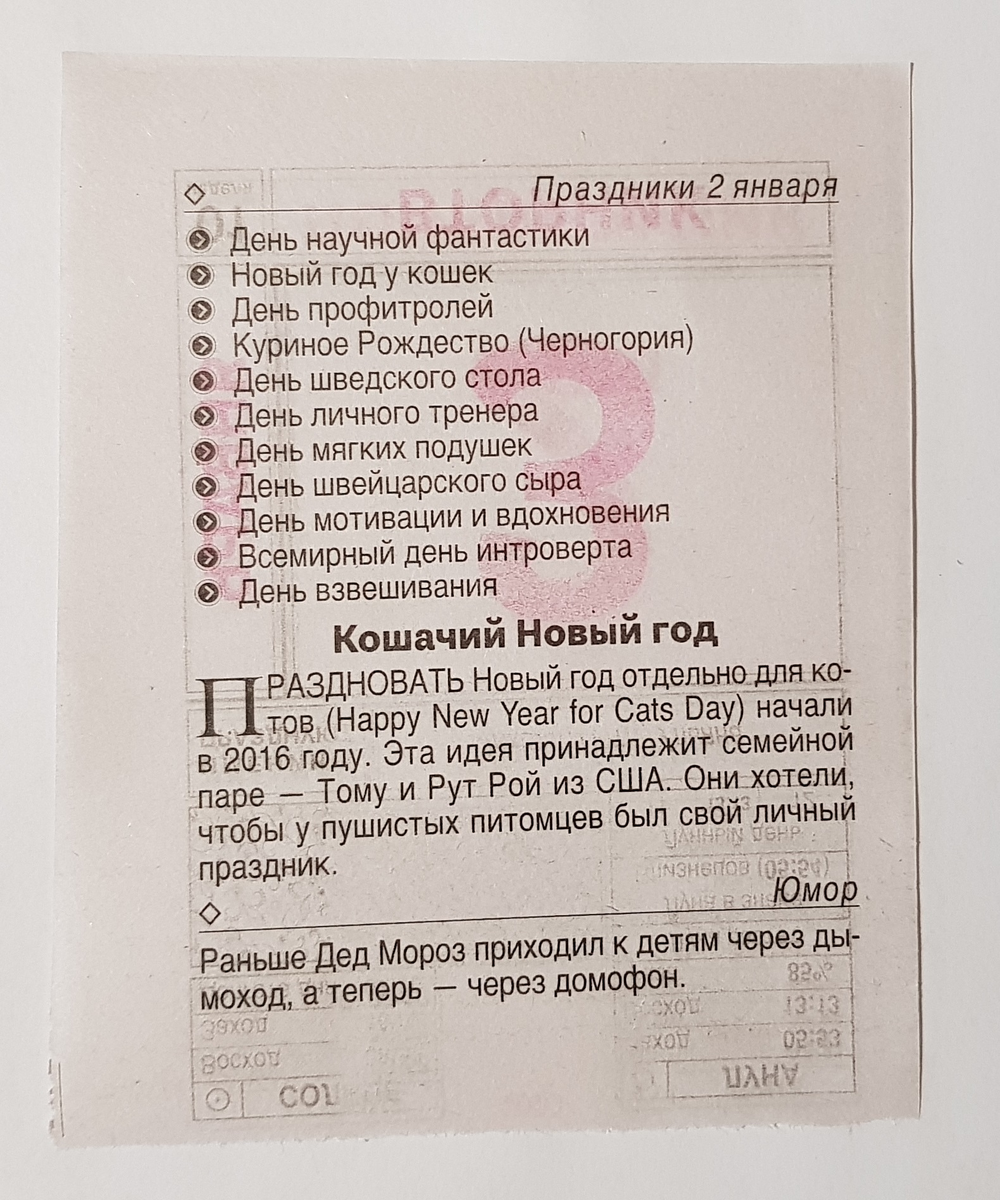 Праздники 2 января
День научной фантастики
Новый год у кошек
День профитролей
Куриное Рождество (Черногория)
День шведского стола
День личного тренера
День мягких подушек
День швейцарского сыра
День мотивации и вдохновения
Всемирный день интроверта
День взвешивания
Кошачий Новый год
ПРАЗДНОВАТЬ Новый год отдельно для ко-
тов (Happy New Year for Cats Day) начали
в 2016 году. Эта идея принадлежит семейной
паре — Тому и Рут Рой из США. Они хотели,
чтобы у пушистых питомцев был свой личный
праздник.
Юмор
Раньше Дед Мороз приходил к детям через ды-
моход, а теперь — через домофон.